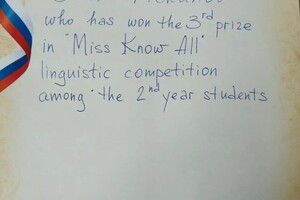 who has won the 3rd prize
in "Miss Know All"
linguistic competition
among the 2nd year students